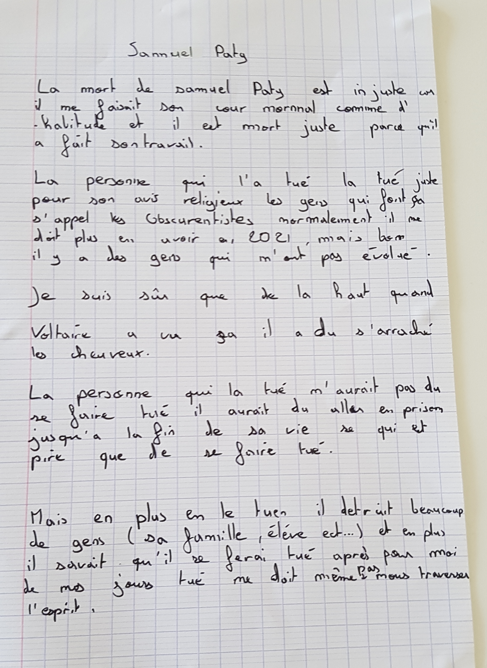 Samuel Paty
La mort de samuel Paty est injuste car
il me faisait son cour mornal comme d'
habitude et il est mort juste parce qu'il
a fait son travail.
La personne qui l'a tué la tué juste
pour son avis religieux les gens qui font ça
s'appel les Obscurentistes normalement il ne
doit plus en avoir en 2021, mais bon
il y a des gens qui n'ont pas évolué.
Je suis sûr que de la haut quand
Voltaire a vu ça il a du s'arraché
les cheuveux.
La personne qui la tué n'aurait pas du
se faire tué il aurait du aller en prison
jusqu'a la fin de sa vie se qui et
pire que de se faire tué.
Mais en plus en le tuen il detruit beaucoup
de gens (sa famille, éléve ect...) et en plus
il savait qu'il se ferai tué apres pour moi
de nos jours tué ne doit même pas nous traverser
l'esprit.